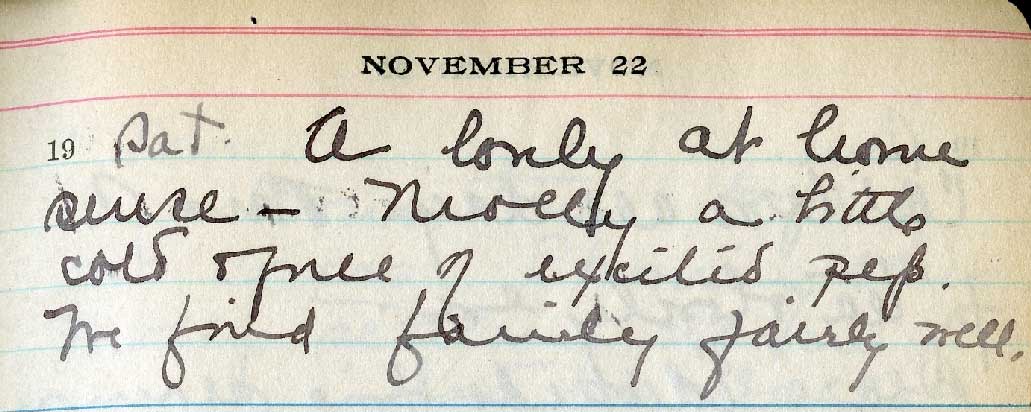 NOVEMBER 22
19 Sat. A lonely at home
sense – Molly a little
cold & full of excited pep.
We find family fairly well.